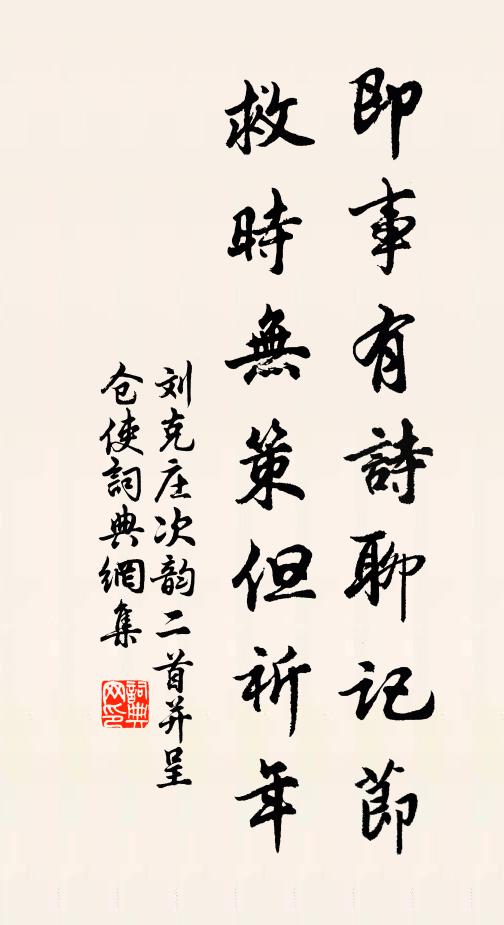 即事有詩聊記節
救時無策但祈年
刘克庄次韵二首并呈
仓使詞典網集
詞典网印